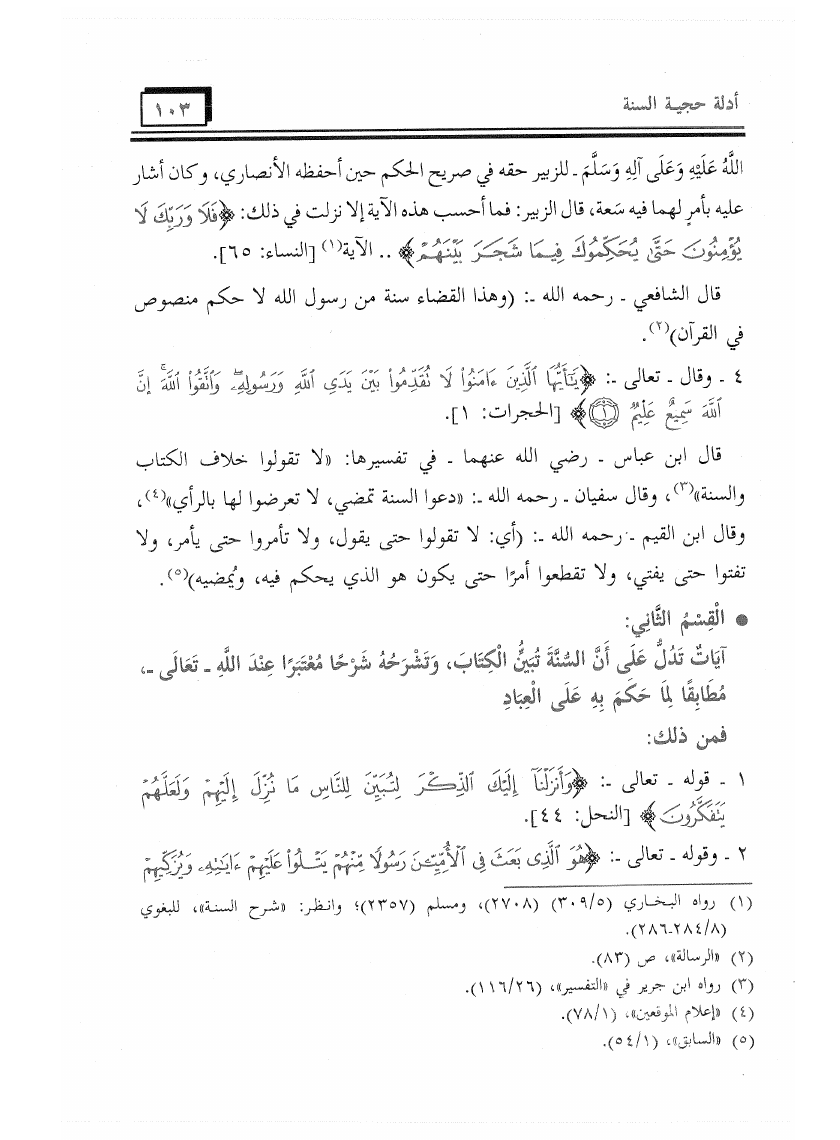 أدلة حجية السنة
١٠٣
اللَّهُ عَلَيْهِ وَعَلَى آلِهِ وَسَلَّمَ ـ للزبير حقه في صريح الحكم حين أحفظه الأنصاري، وكان أشار
عليه بأمرٍ لهما فيه سَعة، قال الزبير: فما أحسب هذه الآية إلا نزلت في ذلك: ﴿فَلَا وَرَبِّكَ لَا
يُؤْمِنُونَ حَتَّىٰ يُحَكِّمُوكَ فِيمَا شَجَرَ بَيْنَهُمْ﴾ .. الآية(١) [النساء: ٦٥].
قال الشافعي ـ رحمه الله ـ: (وهذا القضاء سنة من رسول الله لا حكم منصوص
في القرآن)(٢).
٤ ـ وقال ـ تعالى ـ: ﴿يَٰٓأَيُّهَا ٱلَّذِينَ ءَامَنُوا۟ لَا تُقَدِّمُوا۟ بَيْنَ يَدَىِ ٱللَّهِ وَرَسُولِهِۦ ۖ وَٱتَّقُوا۟ ٱللَّهَ ۚ إِنَّ
ٱللَّهَ سَمِيعٌ عَلِيمٌ ١﴾ [الحجرات: ١].
قال ابن عباس ـ رضي الله عنهما ـ في تفسيرها: «لا تقولوا خلاف الكتاب
والسنة»(٣)، وقال سفيان ـ رحمه الله ـ: «دعوا السنة تمضي، لا تعرضوا لها بالرأي»(٤)،
وقال ابن القيم ـ رحمه الله ـ: (أي: لا تقولوا حتى يقول، ولا تأمروا حتى يأمر، ولا
تفتوا حتى يفتي، ولا تقطعوا أمرًا حتى يكون هو الذي يحكم فيه، ويُمضيه)(٥).
● الْقِسْمُ الثَّانِي:
آيَاتٌ تَدُلُّ عَلَى أَنَّ السُّنَّةَ تُبَيِّنُ الْكِتَابَ، وَتَشْرَحُهُ شَرْحًا مُعْتَبَرًا عِنْدَ اللَّهِ ـ تَعَالَى ـ،
مُطَابِقًا لِمَا حَكَمَ بِهِ عَلَى الْعِبَادِ
فمن ذلك:
١ ـ قوله ـ تعالى ـ: ﴿وَأَنزَلْنَآ إِلَيْكَ ٱلذِّكْرَ لِتُبَيِّنَ لِلنَّاسِ مَا نُزِّلَ إِلَيْهِمْ وَلَعَلَّهُمْ
يَتَفَكَّرُونَ﴾ [النحل: ٤٤].
٢ ـ وقوله ـ تعالى ـ: ﴿هُوَ ٱلَّذِى بَعَثَ فِى ٱلْأُمِّيِّـۧنَ رَسُولًا مِّنْهُمْ يَتْلُوا۟ عَلَيْهِمْ ءَايَٰتِهِۦ وَيُزَكِّيهِمْ
(١) رواه البخاري (٣٠٩/٥) (٢٧٠٨)، ومسلم (٢٣٥٧)؛ وانظر: «شرح السنة»، للبغوي
(٢٨٤/٨ـ٢٨٦).
(٢) «الرسالة»، ص (٨٣).
(٣) رواه ابن جرير في «التفسير»، (١١٦/٢٦).
(٤) «إعلام الموقعين»، (٧٨/١).
(٥) «السابق»، (٥٤/١).